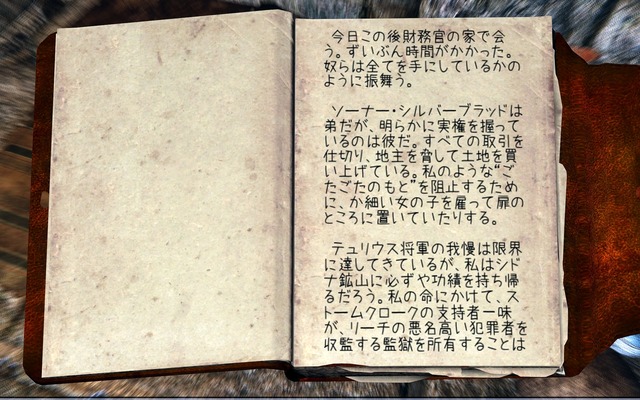 今日この後財務官の家で会
う。ずいぶん時間がかかった。
奴らは全てを手にしているかの
ように振舞う。
ソーナー・シルバーブラッドは
弟だが、明らかに実権を握って
いるのは彼だ。すべての取引を
仕切り、地主を脅して土地を買
い上げている。私のような“ご
たごたのもと”を阻止するため
に、か細い女の子を雇って扉の
ところに置いていたりする。
テュリウス将軍の我慢は限界
に達してきているが、私はシド
ナ鉱山に必ずや功績を持ち帰
るだろう。私の命にかけて、ス
トームクロークの支持者一味
が、リーチの悪名高い犯罪者を
収監する監獄を所有することは